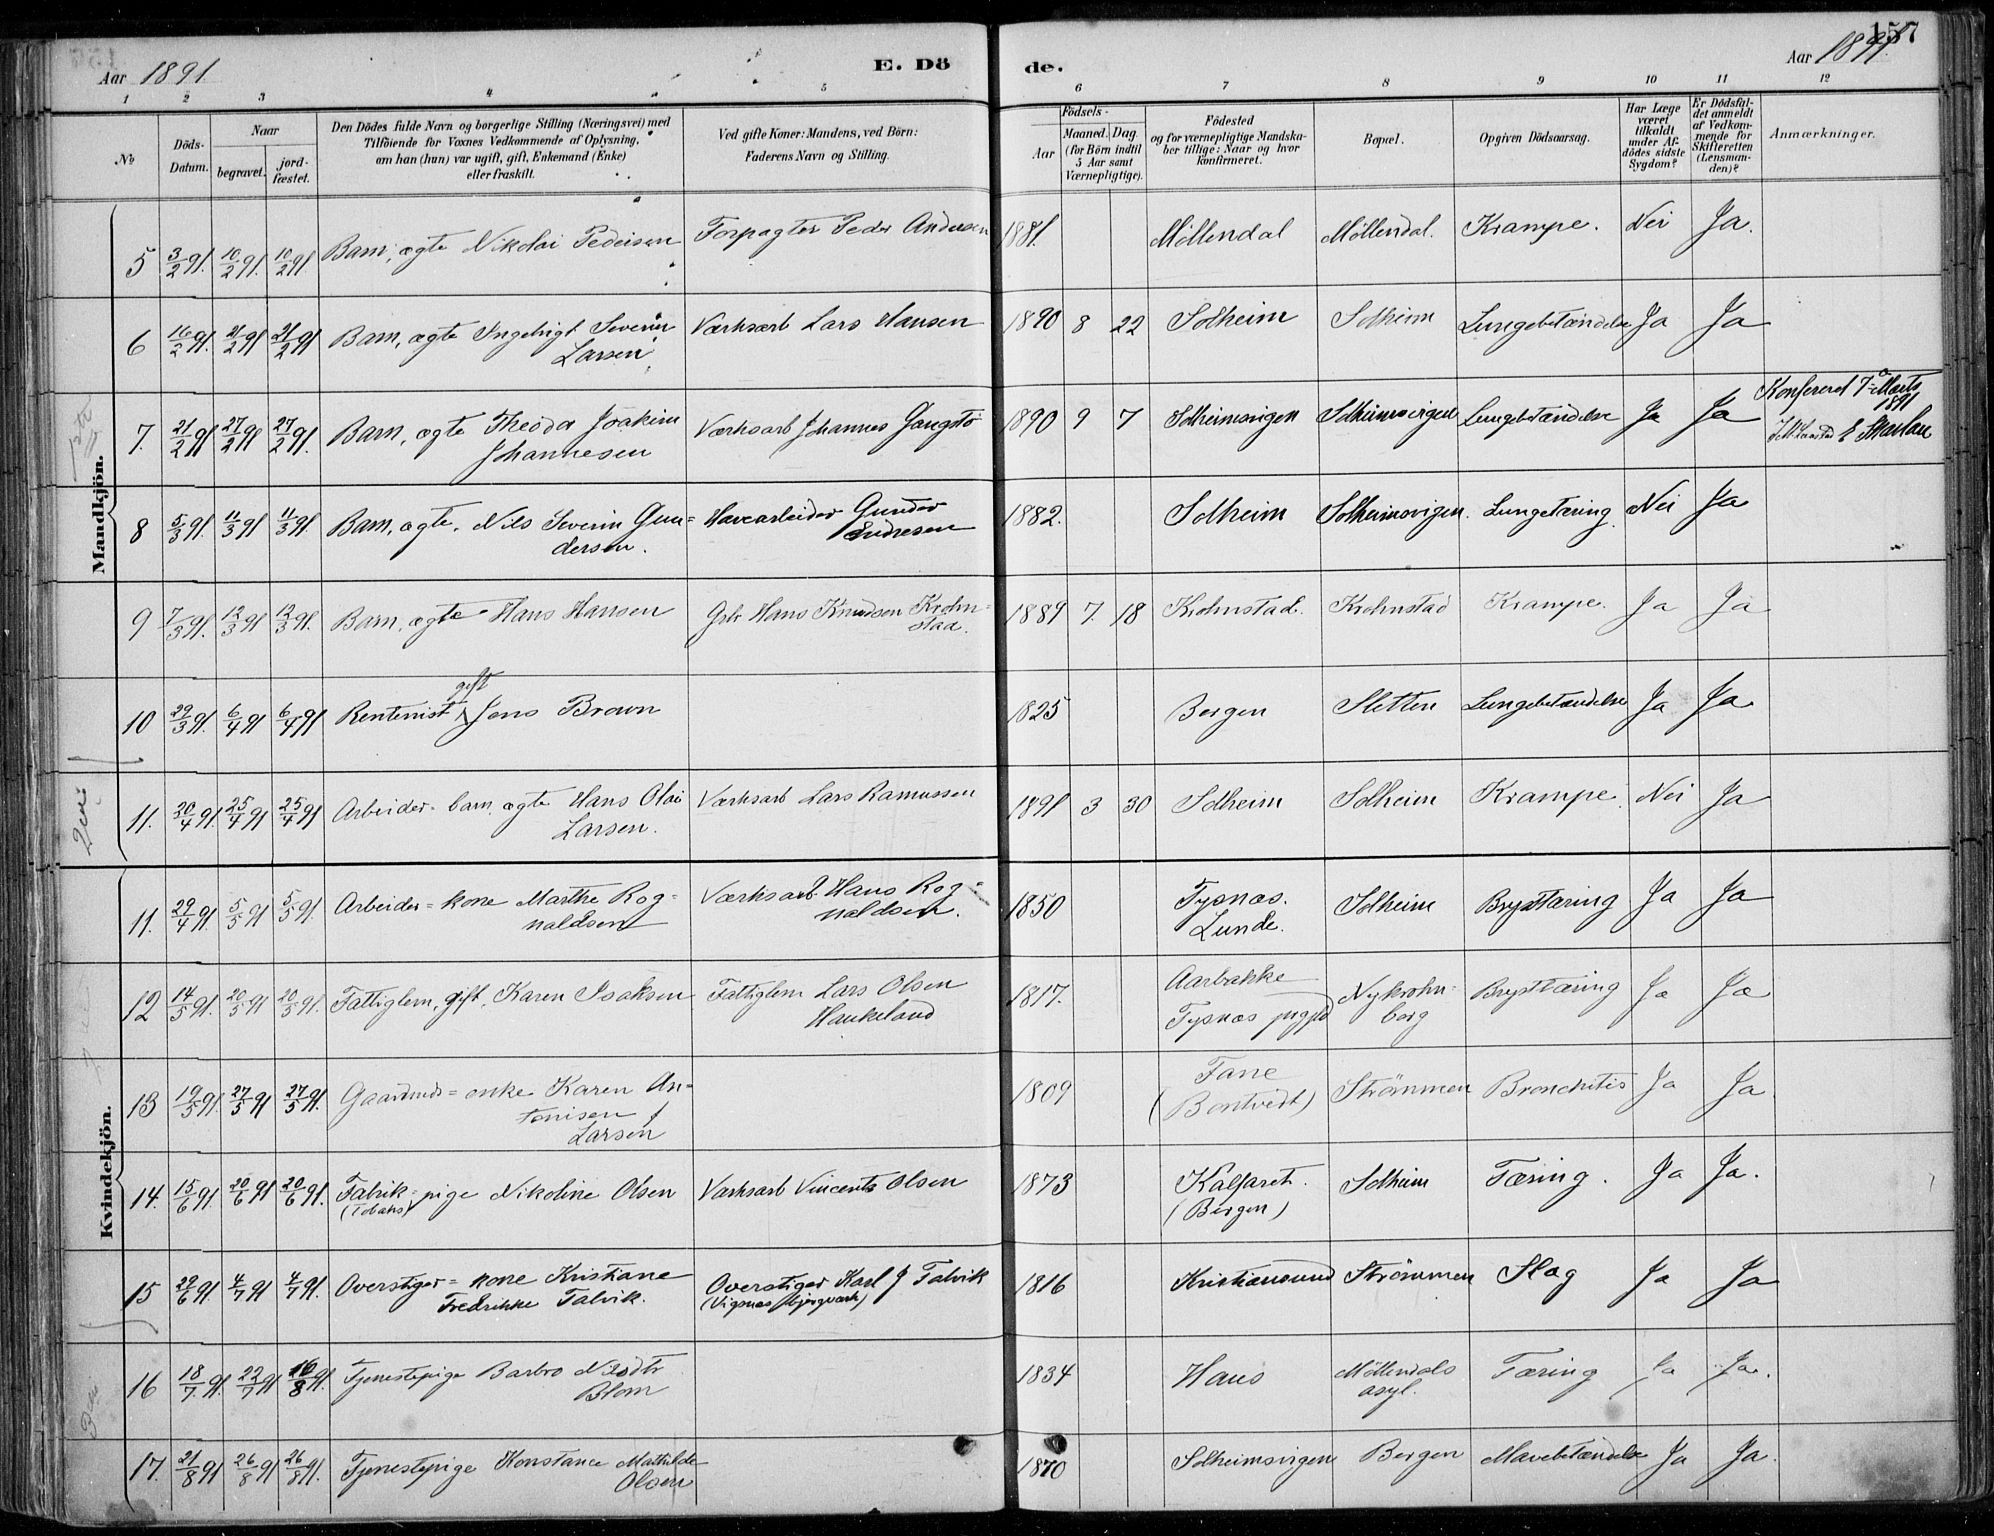 157
Aar 1891 E. Dö de. Aar 1891.
1 2 3 4 5 6 7 8 9 10 11 12
No
Döds-Datum.
Naar
begravet.
jord-fæstet.
Den Dödes fulde Navn og borgerlige Stilling (Næringsvei) med
Tilföiende for Voxnes Vedkommende af Oplysning,
om han (hun) var ugift, gift, Enkemand (Enke)
eller fraskilt.
Ved gifte Koner: Mandens, ved Börn:
Faderens Navn og Stilling.
Födsels-
Aar
Maaned. Dag
(for Börn indtil
5 Aar samt
Værnepligtige).
Födested
og for værnepligtige Mandska-
ber tillige: Naar og hvor
konfirmeret.
Bopæl.
Opgiven Dödsaarsag.
Har Læge
været
tilkaldt
under Af-
dödes sidste
Sygdom?
Er Dödsfal-
det anmeldt
af Vedkom-
mende for
Skifteretten
(Lensman-
den)?
Anmærkninger.
Mandkjön.
5 3/2 91. 10/2 91. 10/2 91 Barn, ægte Nikolai Pedersen Forpagter Peder Andersen 1881. Möllendal Möllendal. Krampe. Nei Ja.
6 16/2 91. 21/2 91 21/2 91 Barn, ægte Ingebrigt Severin Værksarb Lars Hansen 1890 8 22 Solheim Solheim Lungebetændelse Ja Ja
Larsen
7. 21/2 91 27/2 91 27/2 91. Barn, ægte Theodor Joakim Værksarb Johannes Gangstö 1890 9 7 Solheimsvigen Solheimsvigen Lungebetændelse Ja Ja Konfereret 7de Marts 1891
Johannesen
8 5/3 91. 11/3 91 11/3 91 Barn, ægte. Nils Severin Gun= Havearbeider Gunder 1882. Solheim Solheimsvigen. Lungetæring. Nei Ja
dersen. Endresen
9 7/3 91. 12/3 91 12/3 91. Barn, ægte Hans Hansen Gbr Hans Knudsen Krohn= 1889 7. 18 Krohnstad. Krohnstad Krampe. Ja Ja
stad.
gift
10 29/3 91. 6/4 91 6/4 91 Rentenist Jens Brown 1825 Bergen Sletten Lungebetændelse Ja Ja
11. 20/4 91. 25/4 91 25/4 91 Arbeider= barn, ægte Hans Olai Værksarb Lars Rasmussen 1891 3 30 Solheim Solheim Krampe. Nei Ja
Larsen.
Kvindekjön.
11. 29/4 91. 5/5 91 5/5 91. Arbeider= kone Marthe Rog= Værksarb. Hans Rog= 1850 Tysnæs. Solheim Brysttæring Ja Ja
naldsen naldsen. Lunde.
12 14/5 91. 20/5 91 20/5 91. Fattiglem, gift. Karen Isaksen Fattiglem Lars Olsen 1817. Aarbakke Nykrohn= Brysttæring Ja Ja
Haukeland Tysnæs prgjld borg
13 19/5 91. 27/5 91 27/5 91. Gaardmds= enke Karen An= 1809 Fane Strömmen Bronchitis Ja Ja
tonisen (Bontvedt)
Larsen
14. 15/6 91. 20/6 91 20/6 91. Fabrik= pige Nikoline Olsen Værksarb Vincents Olsen 1873 Kalfaret. Solheim Tæring. Ja Ja.
(Tobaks) (Bergen)
15 29/6 91 4/7 91 4/7 91. Overstiger= kone Kristiane Overstiger Karl J Talvik 1816 Kristiansund Strömmen Slag Ja Ja
Fredrikke Talvik. (Vigsnæs bjergværk)
16 18/7 91. 22/7 91 16/8 91. Tjenestepige Barbro Nilsdtr 1834 Haus Möllendals Tæring Ja Ja.
Blom asyl.
17. 21/8 91 26/8 91 26/8 91. Tjenestepige Konstance Mathilde 1870 Solheimsvigen Bergen Mavebetændelse Ja Ja.
Olsen